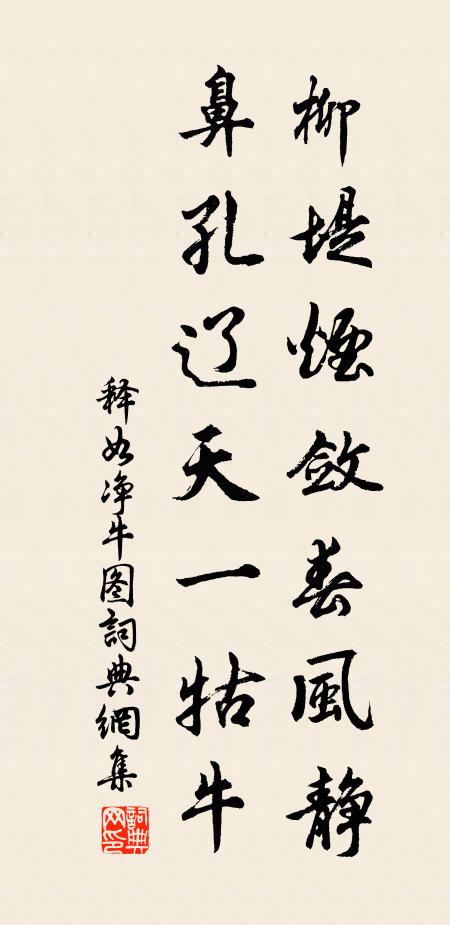 柳堤烟敛春風静
鼻孔辽天一牯牛
释如净牛图詞典網集
詞典网印